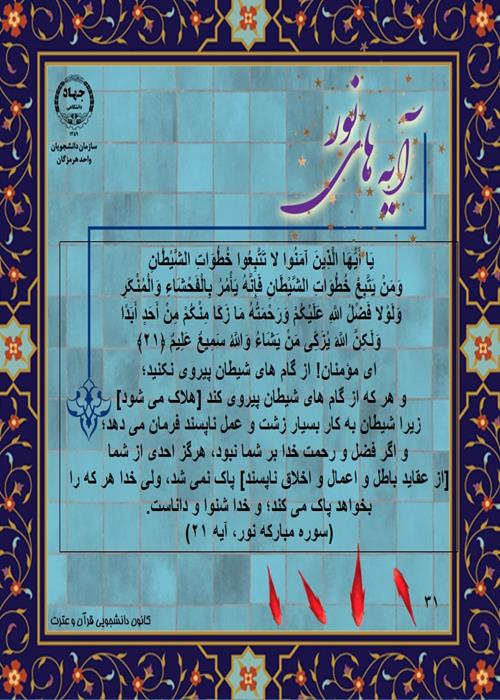 جهاد
دانشگاهی
۱۳۵۹
سازمان دانشجویان
واحد هرمزگان
آیه های نور
يَا أَيُّهَا الَّذِينَ آمَنُوا لَا تَتَّبِعُوا خُطُوَاتِ الشَّيْطَانِ
وَمَنْ يَتَّبِعْ خُطُوَاتِ الشَّيْطَانِ فَإِنَّهُ يَأْمُرُ بِالْفَحْشَاءِ وَالْمُنْكَرِ
وَلَوْلَا فَضْلُ اللَّهِ عَلَيْكُمْ وَرَحْمَتُهُ مَا زَكَا مِنْكُمْ مِنْ أَحَدٍ أَبَدًا
وَلَكِنَّ اللَّهَ يُزَكِّي مَنْ يَشَاءُ وَاللَّهُ سَمِيعٌ عَلِيمٌ ﴿۲۱﴾
ای مؤمنان! از گام های شیطان پیروی نکنید؛
و هر که از گام های شیطان پیروی کند [هلاک می شود]
زیرا شیطان به کار بسیار زشت و عمل ناپسند فرمان می دهد؛
و اگر فضل و رحمت خدا بر شما نبود، هرگز احدی از شما
[از عقاید باطل و اعمال و اخلاق ناپسند] پاک نمی شد، ولی خدا هر که را
بخواهد پاک می کند؛ و خدا شنوا و داناست.
(سوره مبارکه نور، آیه ۲۱)
۳۱
کانون دانشجویی قرآن و عترت